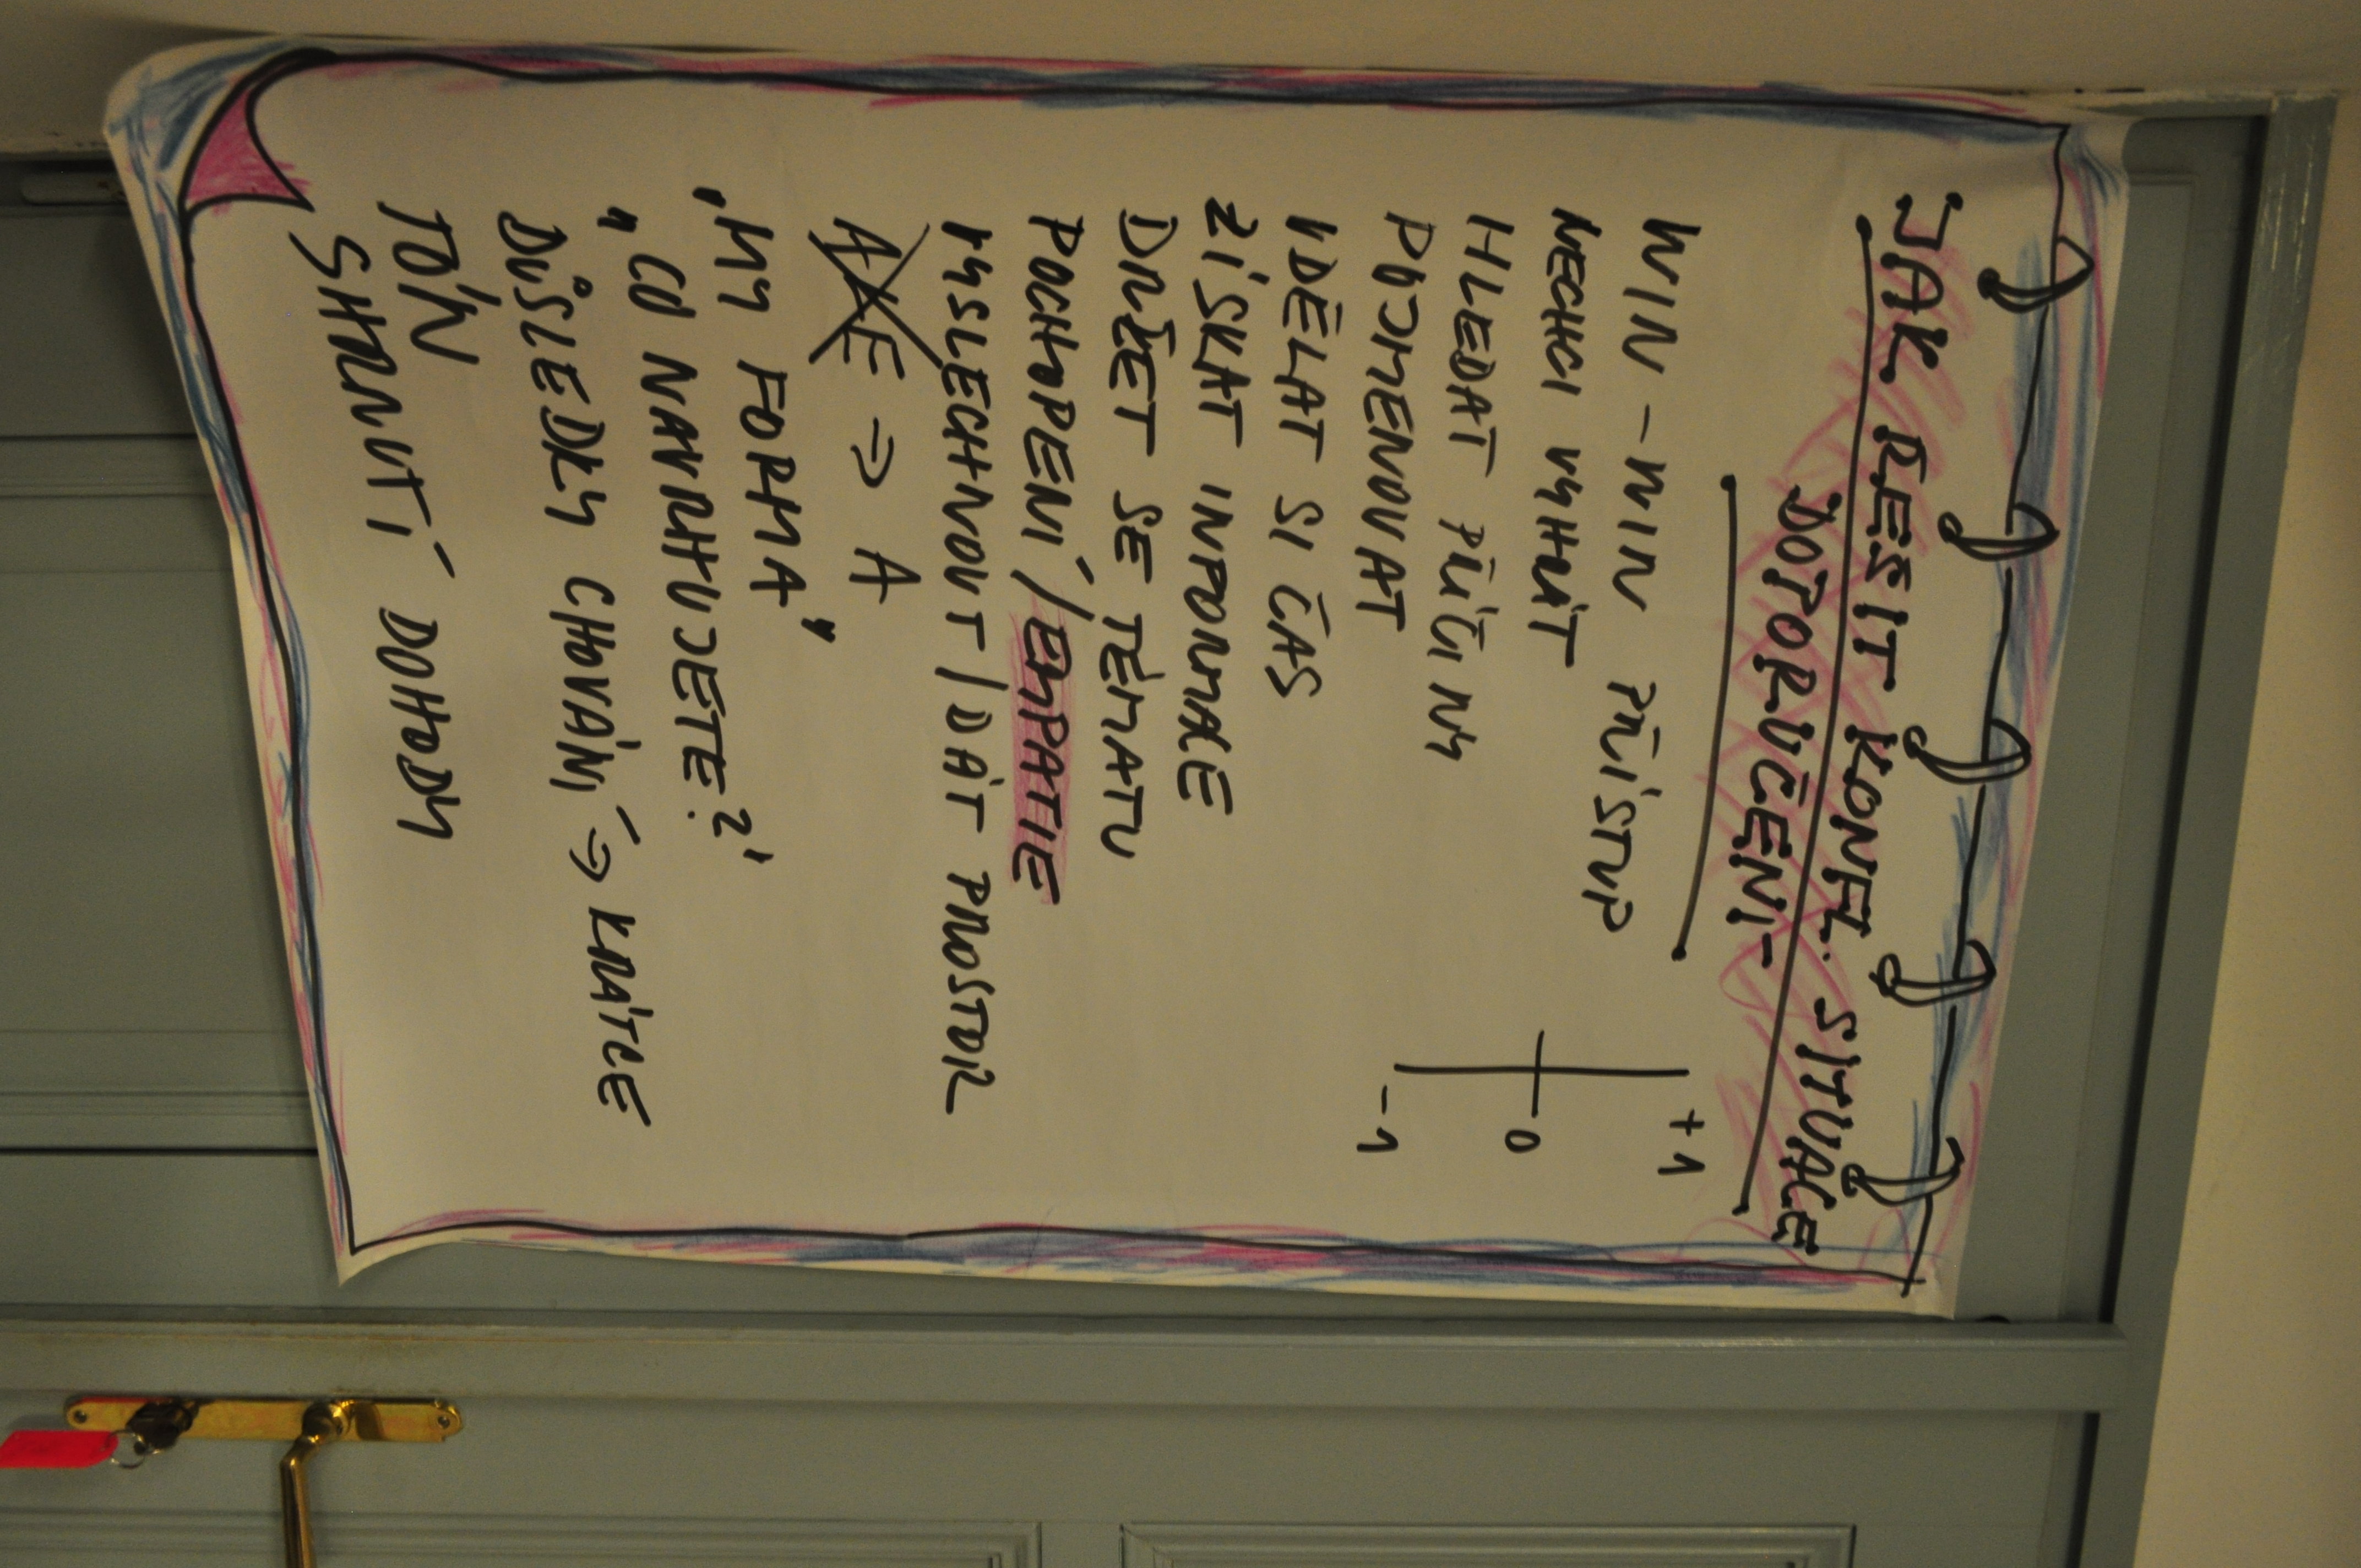 JAK ŘEŠIT KONFL. SITUACE
DOPORUČENÍ
WIN - WIN PŘÍSTUP
NECHCI VYHRÁT
HLEDAT PŘÍČINY
POJMENOVAT
UDĚLAT SI ČAS
ZÍSKAT INFORMACE
DRŽET SE TÉMATU
POCHOPENÍ / EMPATIE
VYSLECHNOUT / DÁT PROSTOR
ALE ⇒ A
"MY FORMA"
"CO NAVRHUJETE?"
DŮSLEDKY CHOVÁNÍ ⇒ KRÁTCE
TÓN
SHRNUTÍ DOHODY
+1
0
-1